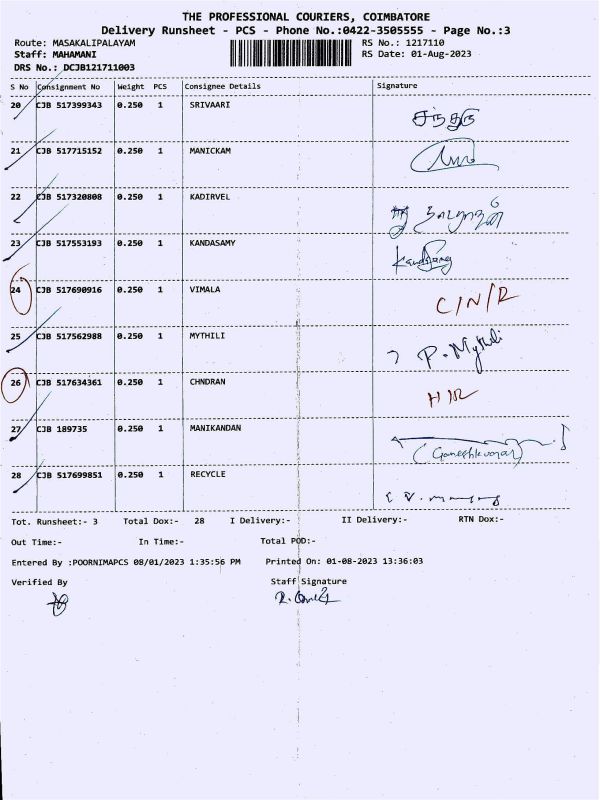 THE PROFESSIONAL COURIERS, COIMBATORE
Delivery Runsheet - PCS - Phone No.:0422-3505555 - Page No.:3
Route: MASAKALIPALAYAM RS No.: 1217110
Staff: MAHAMANI RS Date: 01-Aug-2023
DRS No.: DCJB121711003
S No Consignment No Weight PCS Consignee Details Signature
20 CJB 517399343 0.250 1 SRIVAARI
21 CJB 517715152 0.250 1 MANICKAM
22 CJB 517320808 0.250 1 KADIRVEL
23 CJB 517553193 0.250 1 KANDASAMY
24 CJB 517690916 0.250 1 VIMALA C/N/R
25 CJB 517562988 0.250 1 MYTHILI P. Mythili
26 CJB 517634361 0.250 1 CHNDRAN
27 CJB 189735 0.250 1 MANIKANDAN (Ganeshkumar)
28 CJB 517699851 0.250 1 RECYCLE
Tot. Runsheet:- 3 Total Dox:- 28 I Delivery:- II Delivery:- RTN Dox:-
Out Time:- In Time:- Total POD:-
Entered By :POORNIMAPCS 08/01/2023 1:35:56 PM Printed On: 01-08-2023 13:36:03
Verified By Staff Signature